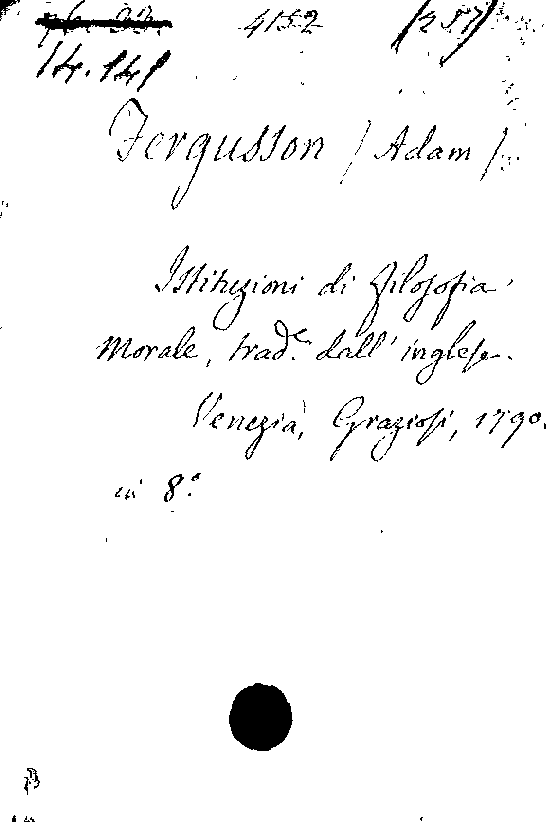 4152 (257)
14.141
Fergusson (Adam)
Istituzioni di filosofia
Morale, trad.e dall' inglese.
Venezia, Graziosi, 1790.
in 8.°